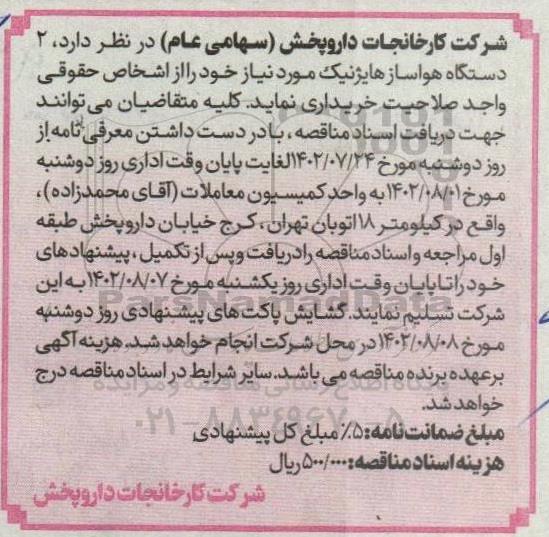 شرکت کارخانجات داروپخش (سهامی عام) در نظر دارد، ۲
دستگاه هواساز هایژنیک مورد نیاز خود را از اشخاص حقوقی
واجد صلاحیت خریداری نماید. کلیه متقاضیان می توانند
جهت دریافت اسناد مناقصه، با در دست داشتن معرفی نامه از
روز دوشنبه مورخ ۱۴۰۲/۰۷/۲۴ لغایت پایان وقت اداری روز دوشنبه
مورخ ۱۴۰۲/۰۸/۰۱ به واحد کمیسیون معاملات (آقای محمدزاده)،
واقع در کیلومتر ۱۸ اتوبان تهران، کرج خیابان داروپخش طبقه
اول مراجعه و اسناد مناقصه را دریافت و پس از تکمیل، پیشنهادهای
خود را تا پایان وقت اداری روز یکشنبه مورخ ۱۴۰۲/۰۸/۰۷ به این
شرکت تسلیم نمایند. گشایش پاکت های پیشنهادی روز دوشنبه
مورخ ۱۴۰۲/۰۸/۰۸ در محل شرکت انجام خواهد شد. هزینه آگهی
برعهده برنده مناقصه می باشد. سایر شرایط در اسناد مناقصه درج
خواهد شد.
مبلغ ضمانت نامه: ۵٪ مبلغ کل پیشنهادی
هزینه اسناد مناقصه: ۵۰۰/۰۰۰ ریال
شرکت کارخانجات داروپخش
ParsNamadData
پایگاه اطلاع رسانی مناقصه و مزایده
۰۲۱-۸۸۳۴۹۶۷۰-۵